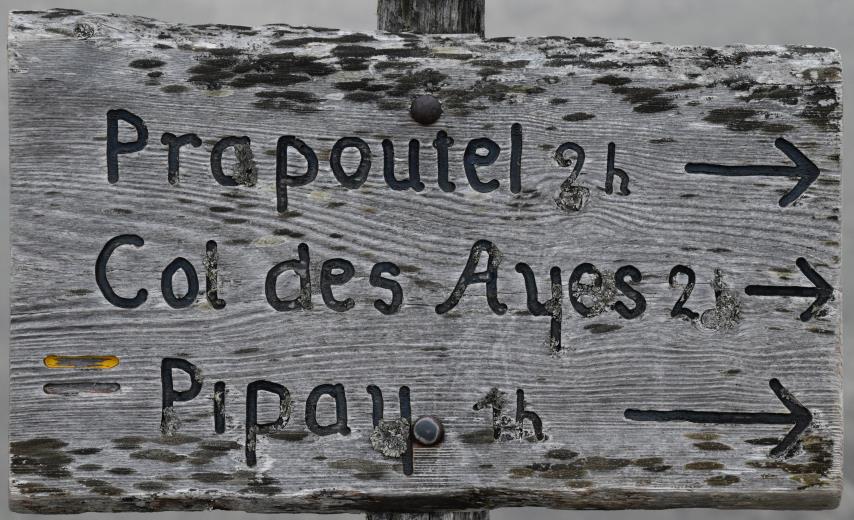 Prapoutel 2h →
Col des Ayes 2h →
Pipay 1h →